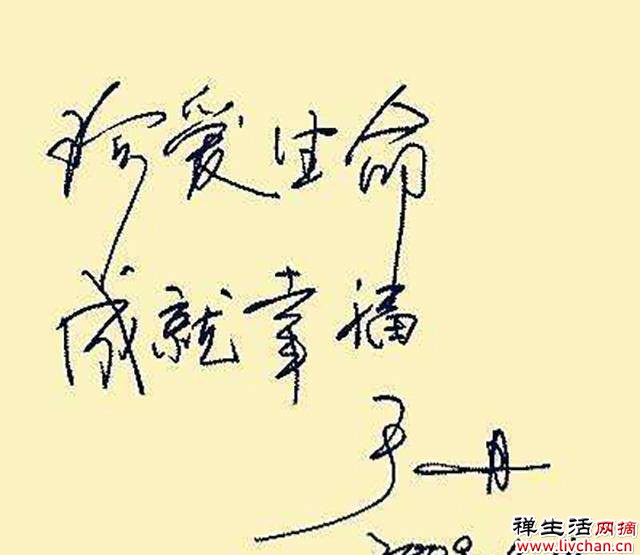 珍爱生命
成就幸福
于丹
禅生活网摘
www.livchan.cn